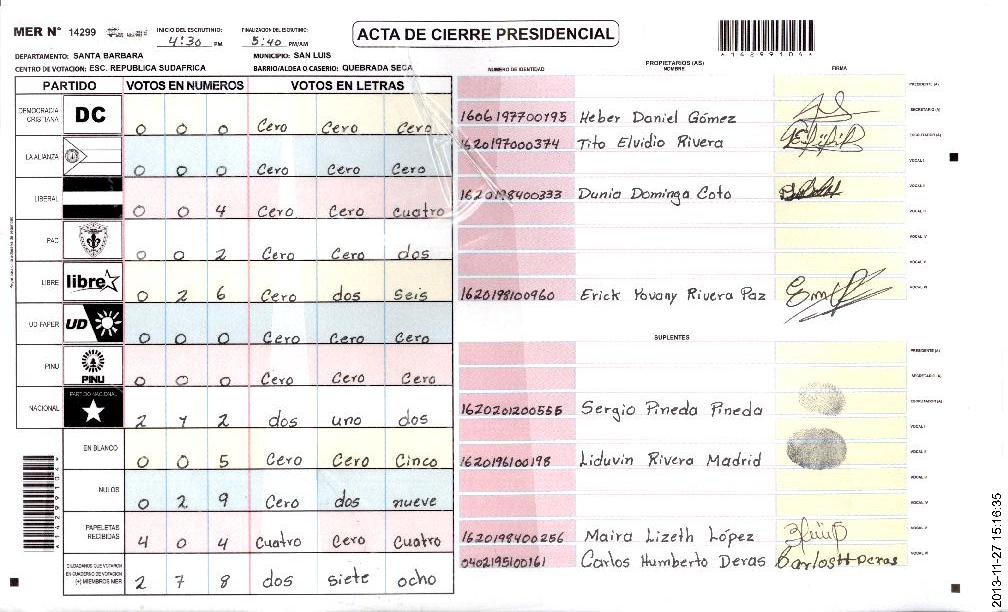 MER N° 14299
INICIO DEL ESCRUTINIO: 4:30 PM
FINALIZACION DEL ESCRUTINIO: 5:40 PM/AM
ACTA DE CIERRE PRESIDENCIAL
A14299104A
DEPARTAMENTO: SANTA BARBARA
MUNICIPIO: SAN LUIS
CENTRO DE VOTACION: ESC. REPUBLICA SUDAFRICA
BARRIO/ALDEA O CASERIO: QUEBRADA SECA
PARTIDO VOTOS EN NUMEROS VOTOS EN LETRAS
DEMOCRACIA CRISTIANA DC 0 0 0 Cero Cero Cero
LA ALIANZA 0 0 0 Cero Cero Cero
LIBERAL 0 0 4 Cero Cero cuatro
PAC 0 0 2 Cero Cero dos
LIBRE libre 0 2 6 Cero dos seis
UD-FAPER UD 0 0 0 Cero Cero Cero
PINU PINU 0 0 0 Cero Cero Cero
NACIONAL PARTIDO NACIONAL 2 1 2 dos uno dos
EN BLANCO 0 0 5 Cero Cero Cinco
NULOS 0 2 9 Cero dos nueve
PAPELETAS RECIBIDAS 4 0 4 Cuatro Cero Cuatro
CIUDADANOS QUE VOTARON EN CUADERNO DE VOTACION (+) MIEMBROS MER 2 7 8 dos siete ocho
PROPIETARIOS (AS)
NUMERO DE IDENTIDAD NOMBRE FIRMA
PRESIDENTE (A)
1606197700195 Heber Daniel Gómez SECRETARIO (A)
1620197000374 Tito Elvidio Rivera ESCRUTADOR (A)
VOCAL I
1620198400333 Dunia Dominga Coto VOCAL II
VOCAL III
VOCAL IV
VOCAL V
1620198100960 Erick Yovany Rivera Paz VOCAL VI
SUPLENTES
PRESIDENTE (A)
SECRETARIO (A)
1620201200555 Sergio Pineda Pineda ESCRUTADOR (A)
VOCAL I
1620196100198 Liduvin Rivera Madrid VOCAL II
VOCAL III
VOCAL IV
1620198400256 Maira Lizeth López VOCAL V
0402195100161 Carlos Humberto Deras Carlos H Deras VOCAL VI
2013-11-27 15:16:35